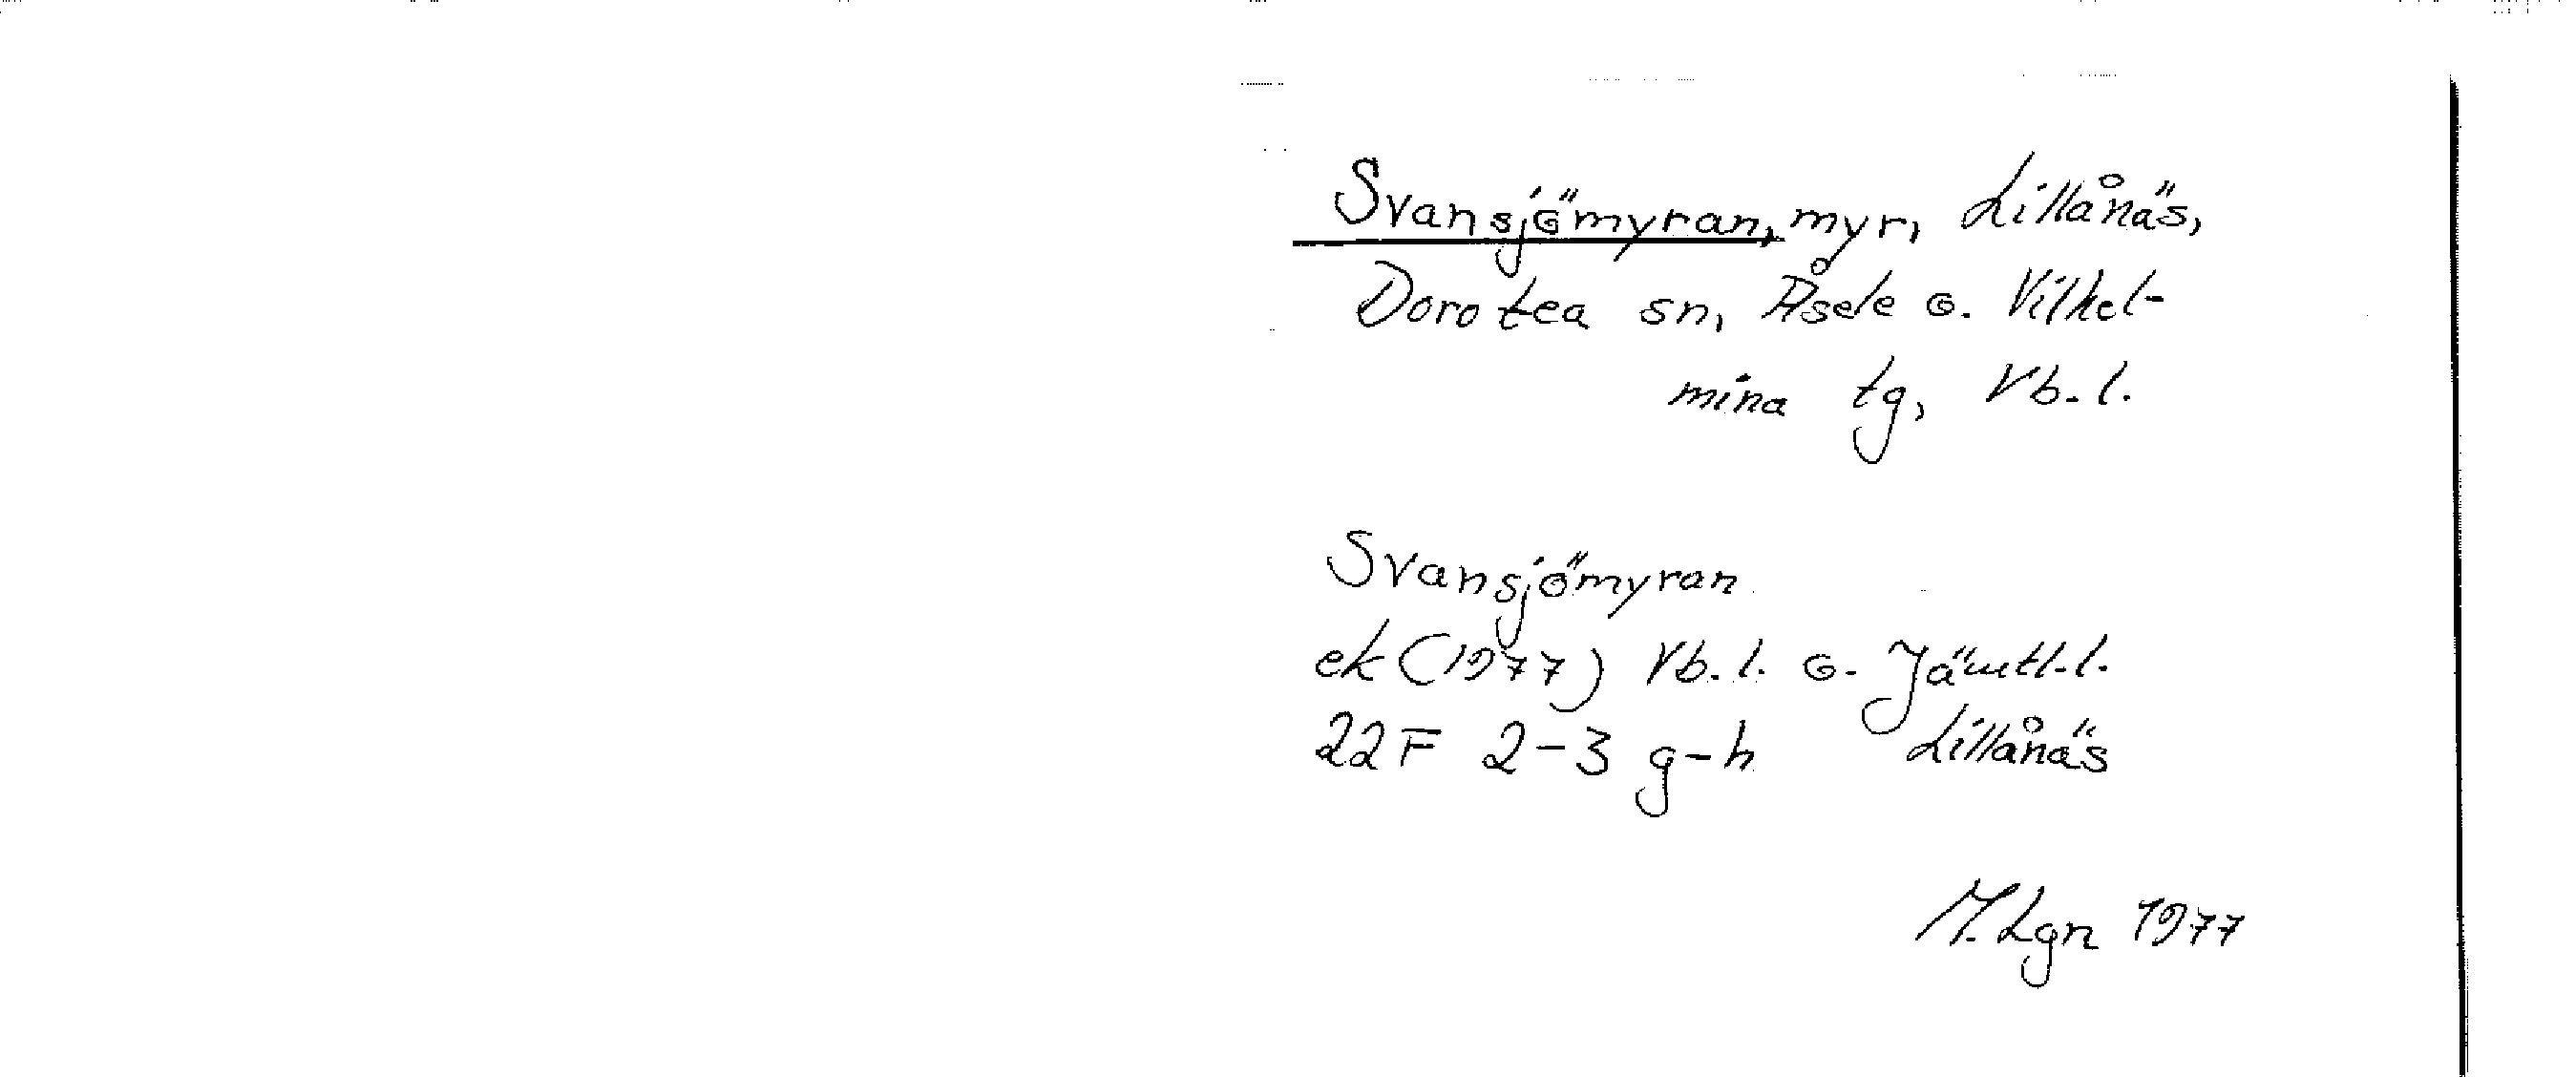 Svansjömyran, myr, Lillånäs,
Dorotea sn, Åsele o. Vilhel-
mina tg, Vb. l.
Svansjömyran
ek (1977) Vb. l. o. Jämtl. l.
22 F 2-3 g-h Lillånäs
M. Lgn 1977